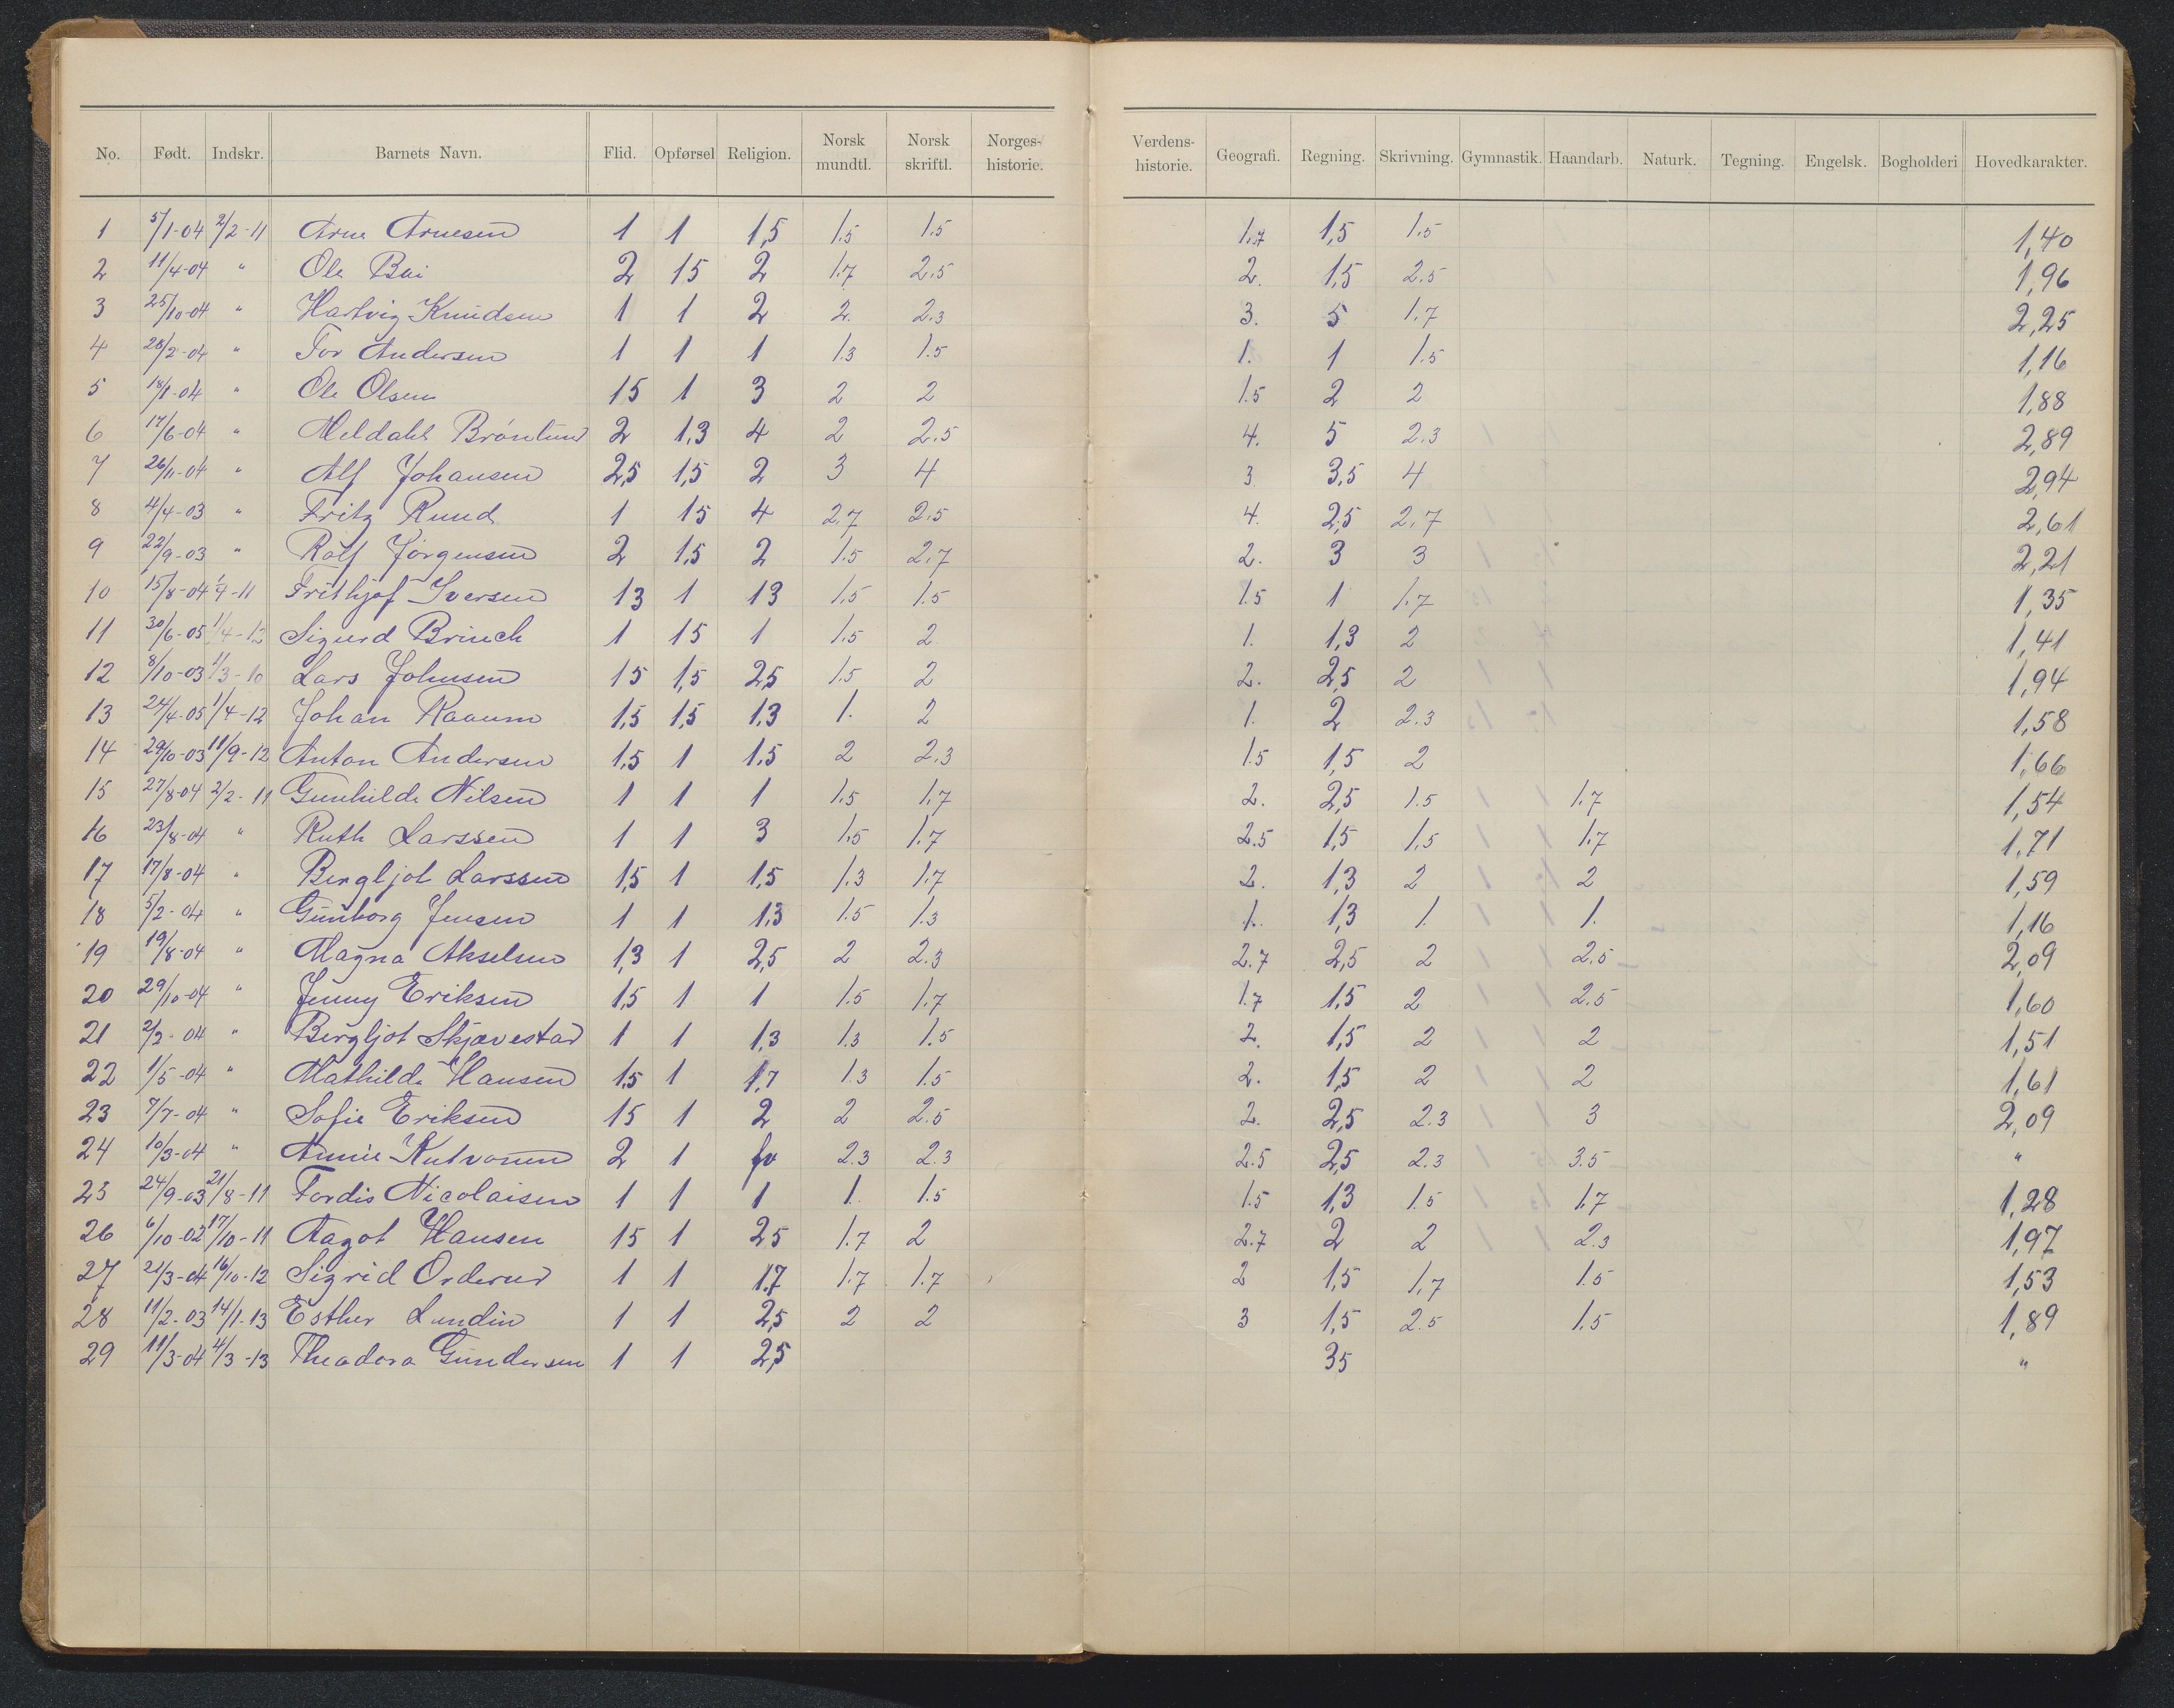 No. Født. Indskr. Barnets Navn. Flid. Opførsel Religion. Norsk mundtl. Norsk skriftl. Norges-historie. Verdens-historie. Geografi. Regning. Skrivning. Gymnastik. Haandarb. Naturk. Tegning. Engelsk. Bogholderi Hovedkarakter.
1 5/1-04 2/2-11 Arne Arnesen 1 1 1,5 1.5 1.5 1.7 1,5 1.5 1,40
2 11/4-04 " Ole Bai 2 15 2 1.7 2.5 2. 1,5 2.5 1,96
3 25/10-04 " Hartvig Knudsen 1 1 2 2. 2.3 3. 5 1.7 2,25
4 28/2-04 " Tor Andersen 1 1 1 1.3 1.5 1. 1 1.5 1,16
5 18/1-04 " Ole Olsen 15 1 3 2 2 1.5 2 2 1,88
6 17/6-04 " Meldahl Brönlund 2 1,3 4 2 2.5 4. 5 2.3 2,89
7 26/11-04 " Alf Johansen 2,5 1,5 2 3 4 3 3,5 4 2,94
8 4/4-03 " Fritz Ruud 1 15 4 2.7 2.5 4. 2,5 2.7 2,61
9 22/9-03 " Rolf Jørgensen 2 1,5 2 1.5 2.7 2. 3 3 2,21
10 15/8-04 1/4-11 Frithjof Iversen 13 1 13 1.5 1.5 1.5 1 1.7 1,35
11 30/6-05 1/4-12 Sigurd Brinch 1 15 1 1.5 2 1. 1,3 2 1,41
12 8/10-03 1/3-10 Lars Johnsen 15 1,5 25 1.5 2 2. 2,5 2 1,94
13 24/4-05 1/4-12 Johan Raaum 1,5 1,5 1,3 1. 2 1. 2 2.3 1,58
14 29/10-03 11/9-12 Anton Andersen 1,5 1 1,5 2 2.3 1.5 1,5 2 1,66
15 27/8-04 2/2-11 Gunhilde Nilsen 1 1 1 1.5 1.7 2. 2,5 1.5 1.7 1,54
16 23/8-04 " Ruth Larssen 1 1 3 1.5 1.7 2.5 1,5 1.5 1.7 1,71
17 17/8-04 " Bergljot Larssen 1,5 1 1,5 1.3 1.7 2. 1,3 2 2 1,59
18 5/2-04 " Gunborg Jensen 1 1 1,3 1.5 1.3 1. 1,3 1. 1. 1,16
19 19/8-04 " Magna Akselsen 1,3 1 2,5 2 2.3 2.7 2,5 2 2.5 2,09
20 29/10-04 " Jenny Eriksen 1,5 1 1 1.5 1.7 1.7 1,5 2 2.5 1,60
21 2/2-04 " Bergljot Skjævestad 1 1 1,3 1.3 1.5 2. 1,5 2 2 1,51
22 1/5-04 " Mathilde Hansen 1,5 1 1,7 1.3 1.5 2. 1,5 2 2 1,61
23 7/7-04 " Sofie Eriksen 15 1 2 2 2.5 2. 2,5 2.3 3 2,09
24 10/3-04 " Annie 2 1 fr 2.3 2.3 2.5 2,5 2.3 3.5 "
25 24/9-03 21/8-11 Tordis Nicolaisen 1 1 1 1. 1.5 1.5 1,3 1.5 1.7 1,28
26 6/10-02 17/10-11 Aagot Hansen 15 1 25 1.7 2 2.7 2 2 2.3 1,97
27 21/3-04 16/10-12 Sigrid Orderud 1 1 1,7 1.7 1.7 2 1,5 1.7 1.5 1,53
28 11/2-03 14/1-13 Esther Lundin 1 1 2,5 2 2 3 1,5 2.5 1.5 1,89
29 11/3-04 4/3-13 Theodora Gundersen 1 1 2,5 35 "